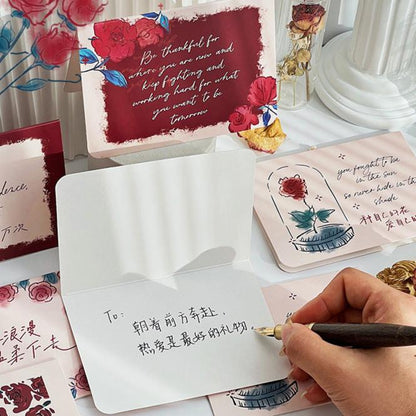 Be thankful for
where you are now and
keep fighting and
working hard for what
you want to be
tomorrow
you fought to be
in the sun
so never hide in the
shade
种自己的花
爱自己的
To:
朝着前方奔赴,
热爱是最好的礼物.
浪漫